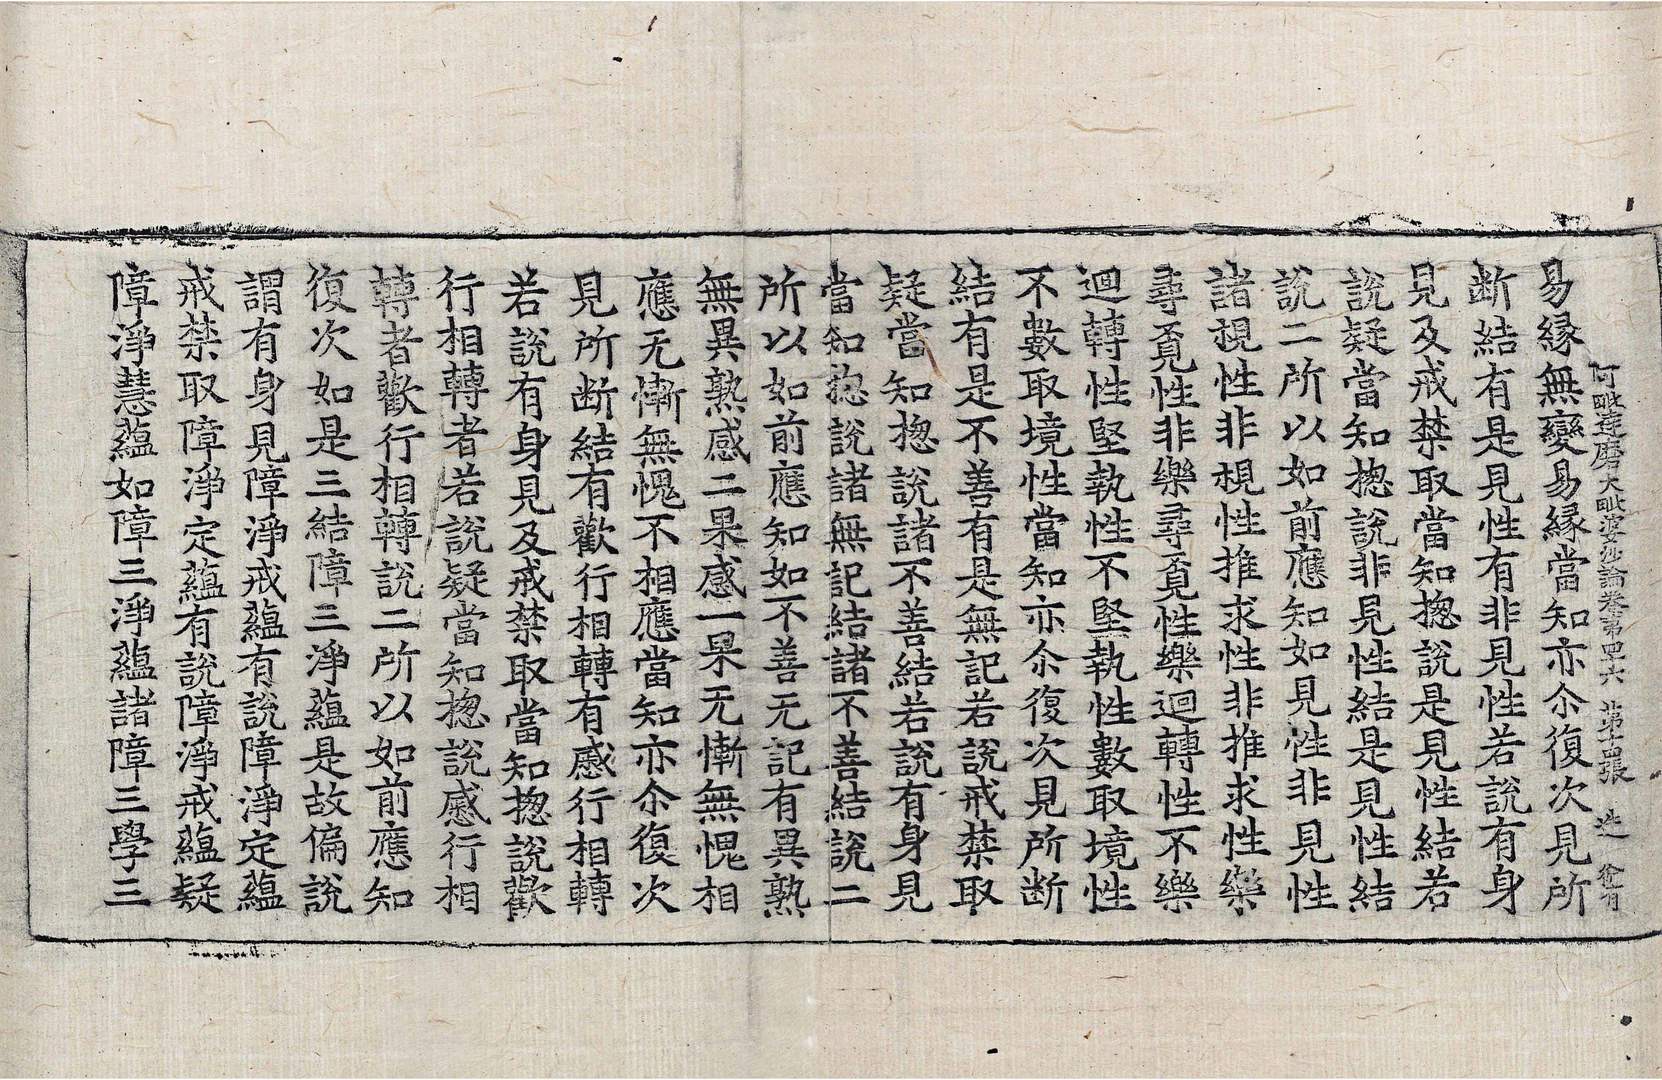 阿毗達磨大毗婆沙論卷第四六 第十四張 徐有
易緣無變易緣當知亦尒復次見所
断結有是見性有非見性若說有身
見及戒禁取當知揔說是見性結若
說疑當知揔說非見性結是見性結
說二所以如前應知如見性非見性
諸視性非視性推求性非推求性樂
尋覔性非樂尋覔性樂迴轉性不樂
迴轉性堅執性不堅執性數取境性
不數取境性當知亦尒復次見所断
結有是不善有是無記若說戒禁取
疑當知揔說諸不善結若說有身見
當知揔說諸無記結諸不善結說二
所以如前應知如不善无記有異熟
無異熟感二果感一果无慚無愧相
應无慚無愧不相應當知亦尒復次
見所断結有歡行相轉有慼行相轉
若說有身見及戒禁取當知揔說歡
行相轉者若說疑當知揔說慼行相
轉者歡行相轉說二所以如前應知
復次如是三結障三淨蘊是故偏說
謂有身見障淨戒蘊有說障淨定蘊
戒禁取障淨定蘊有說障淨戒蘊疑
障淨慧蘊如障三淨蘊諸障三學三